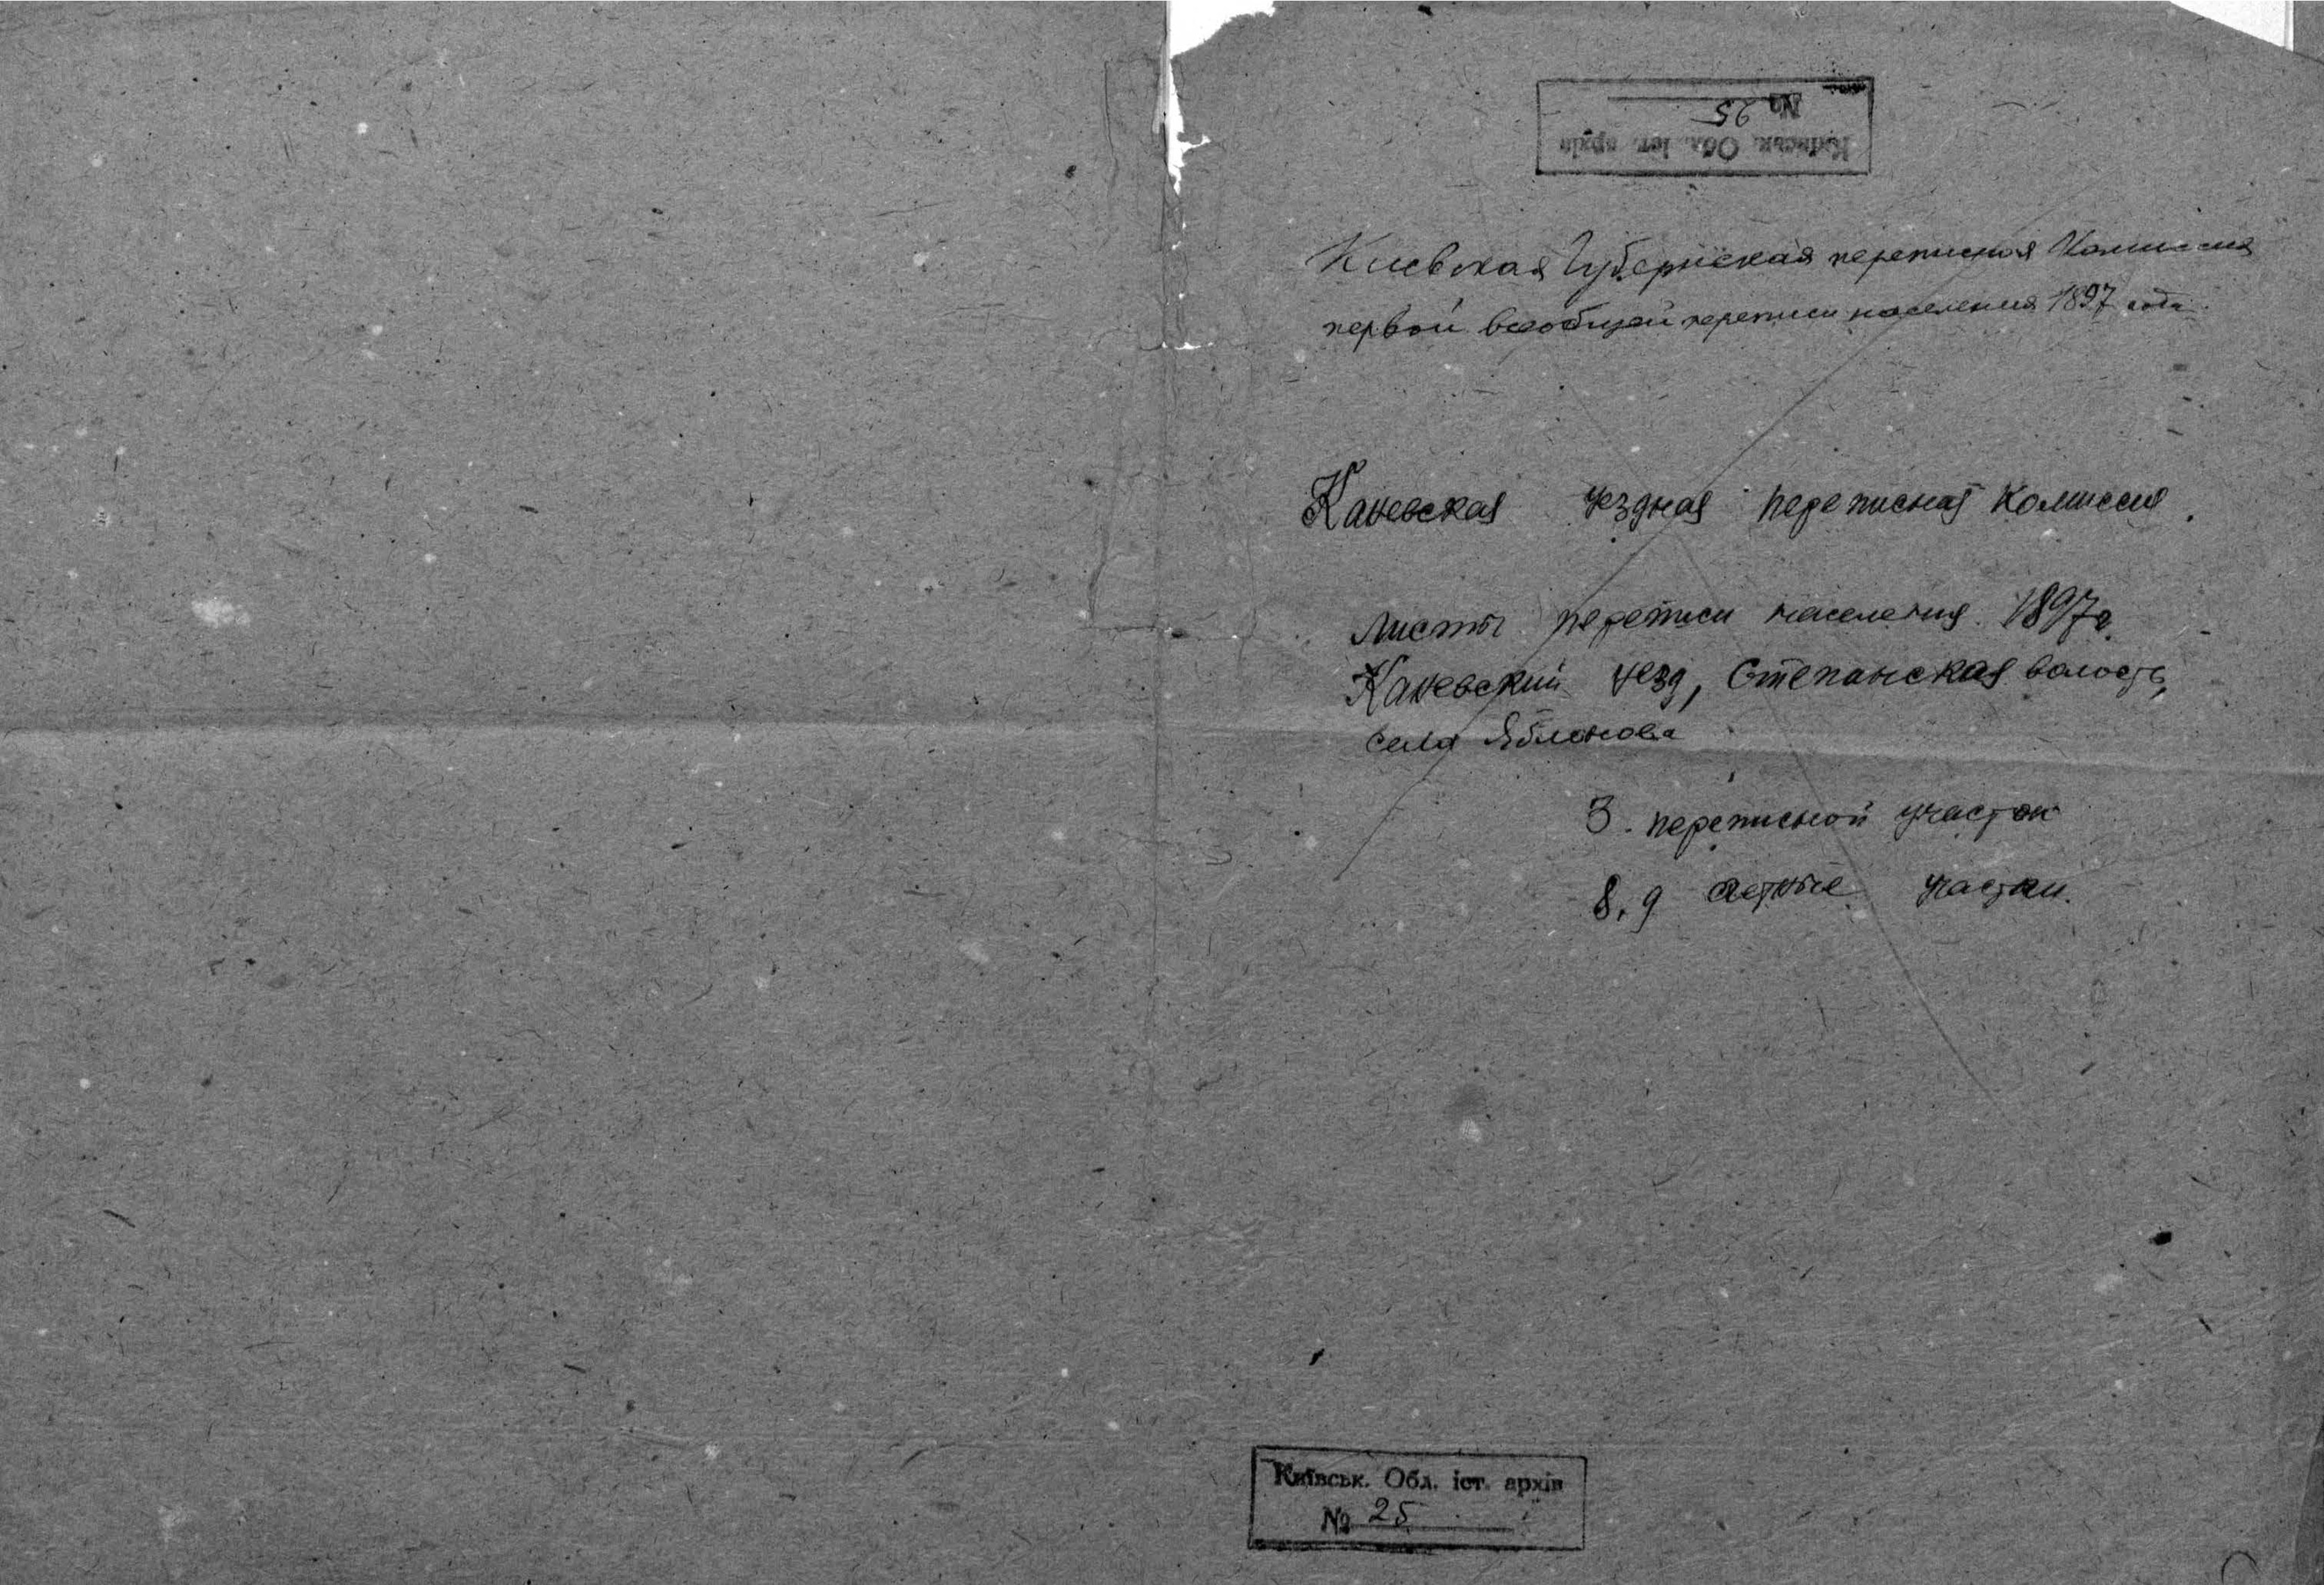 Київськ. Обл. іст. архів
№ 25
Киевская Губернская переписная Комиссия
первой всеобщей переписи населения 1897 года.
Каневская уездная переписная комиссия.
Листы переписи населения 1897г.
Каневский уезд, Степанская волость,
села Яблонова
3. переписной участок
8, 9 счетные участки.
Київськ. Обл. іст. архів
№ 25